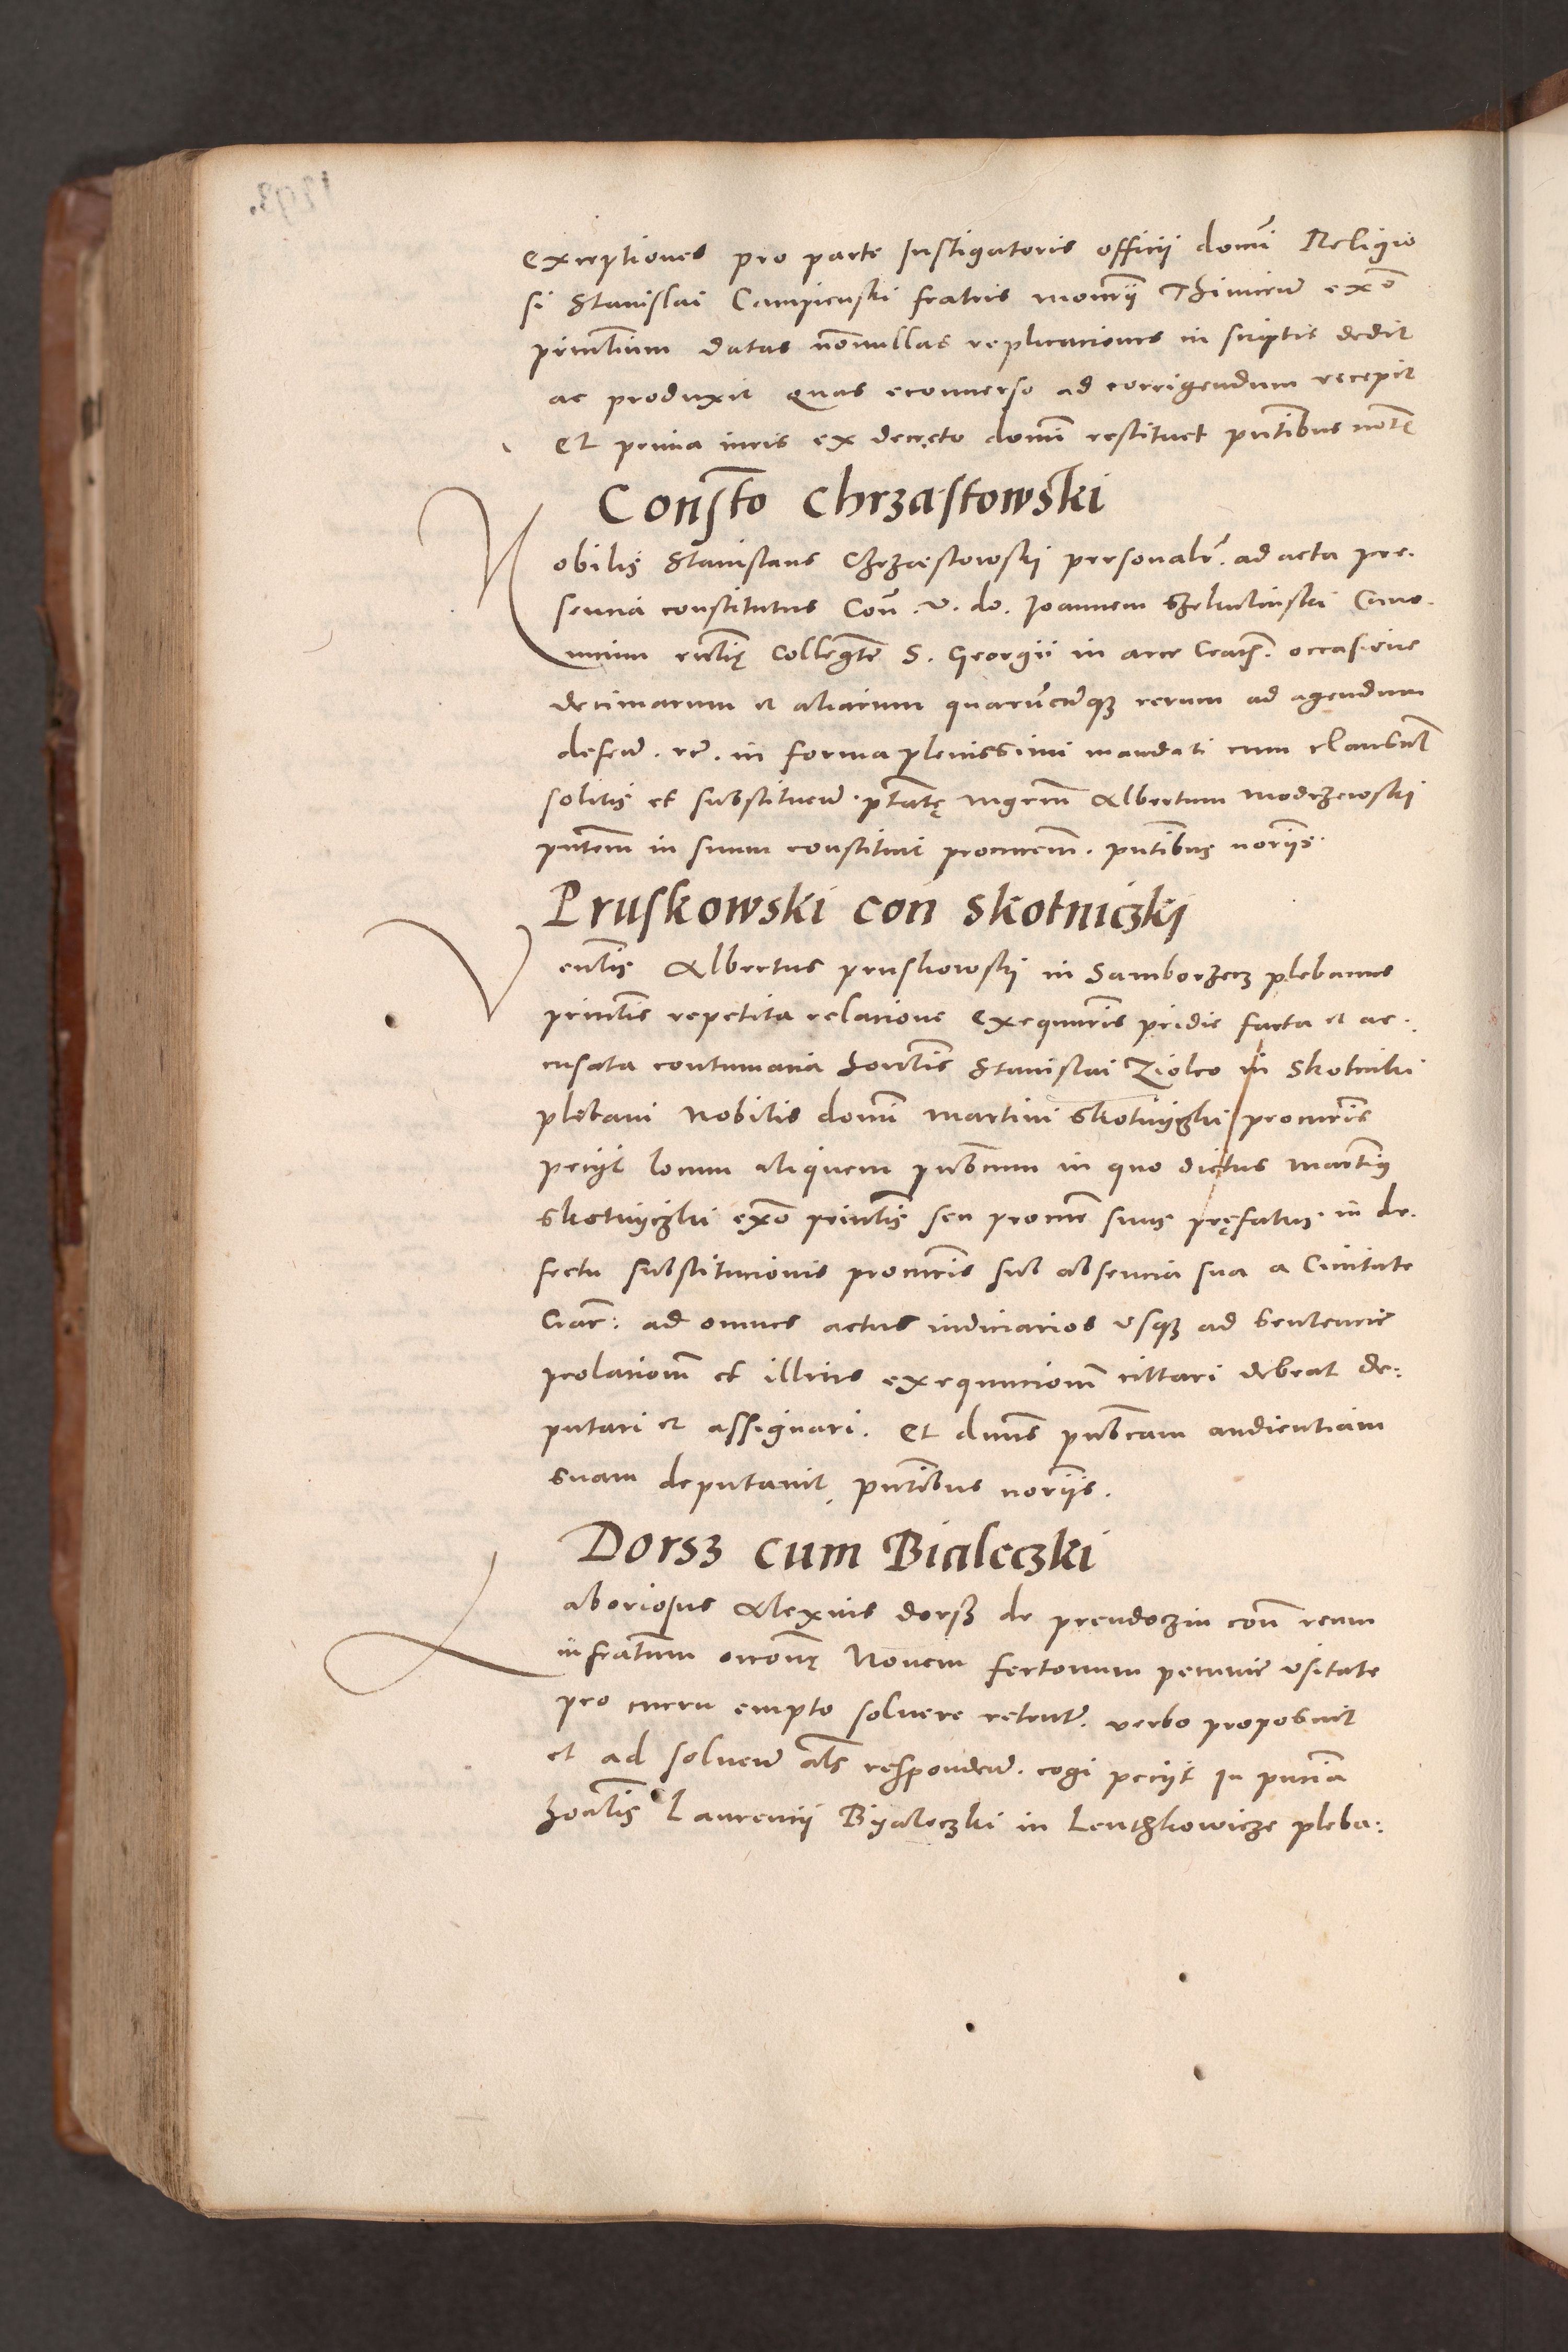 exceptiones pro parte Instigatoris officii domi͂ Religio
si Stanislai Campienski fratris mon̄rii Thinicieñ ex͂o
prin̄lium datas no͂nullas replicaciones in scriptis dedit
ac produxit quas econuerso ad corrigendum recepit
Et prima iuris ex decreto domi͂ restituet pñtibus not͂
Const͂o Chrzastowski
Nobilis Stanislaus Chrzastowski personalr͂. ad acta pre.
sencia constitutus Con͂. v. do. Joannem Canо.
nicum eccl͂ię Colleg͂te S. Georgii in arce Crac͂. occasione
decimarum et aliarum quaru͂cu͂q͡ꝫ rerum ad agendum
defen͂. rc͂. in forma plenissimi mandati cum clausul͂
solitis et substituen͂. p͂tatę mgr͂m Albertum Modrzewski
pñtem in suum constituit procur͂em. pñtibus nor͂iis.
Pruskowski con͂ Skotniczki
Venl͂is Albertus pruskowskj in Samborzecz plebanus
prin͂lis repetita relacione exequur͂is pridie facta et ac.
cusata contumacia hon͂lis Stanislai Ziolco in Skotniki
plebani Nobilis domi͂ Martini Skotniczki procur͂is
peciit locum aliquem pub͂cum in quo dictus Martin9
Skotniczki ex͂o prin͂lis seu procur͂ suus pręfatus in de.
fectu substitucionis procur͂is sub absencia sua a Ciuitate
Crac͂: ad omnes actus iudiciarios vsq͡ꝫ ad sentencie
prolacion͂e et illius exequucion͂e cittari debeat de:
putari et assignari. Et dn͂us pub͂cam audientiam
suam deputauit pñtibus nor͂iis.
Dorsz cum Bialeczki
Laboriosus Alexius dorsz de prendoczin con͂ reum
infra͂tum occon͂ę Nouem fertonum pecunie vsitate
pro curru empto soluere retent͂. verbo proposuit
et ad soluen͂ al͂s responden͂. cogi peciit In pn͂cia
hon͂lis Laurencij Byaleczki in Leuthkowicze pleba: